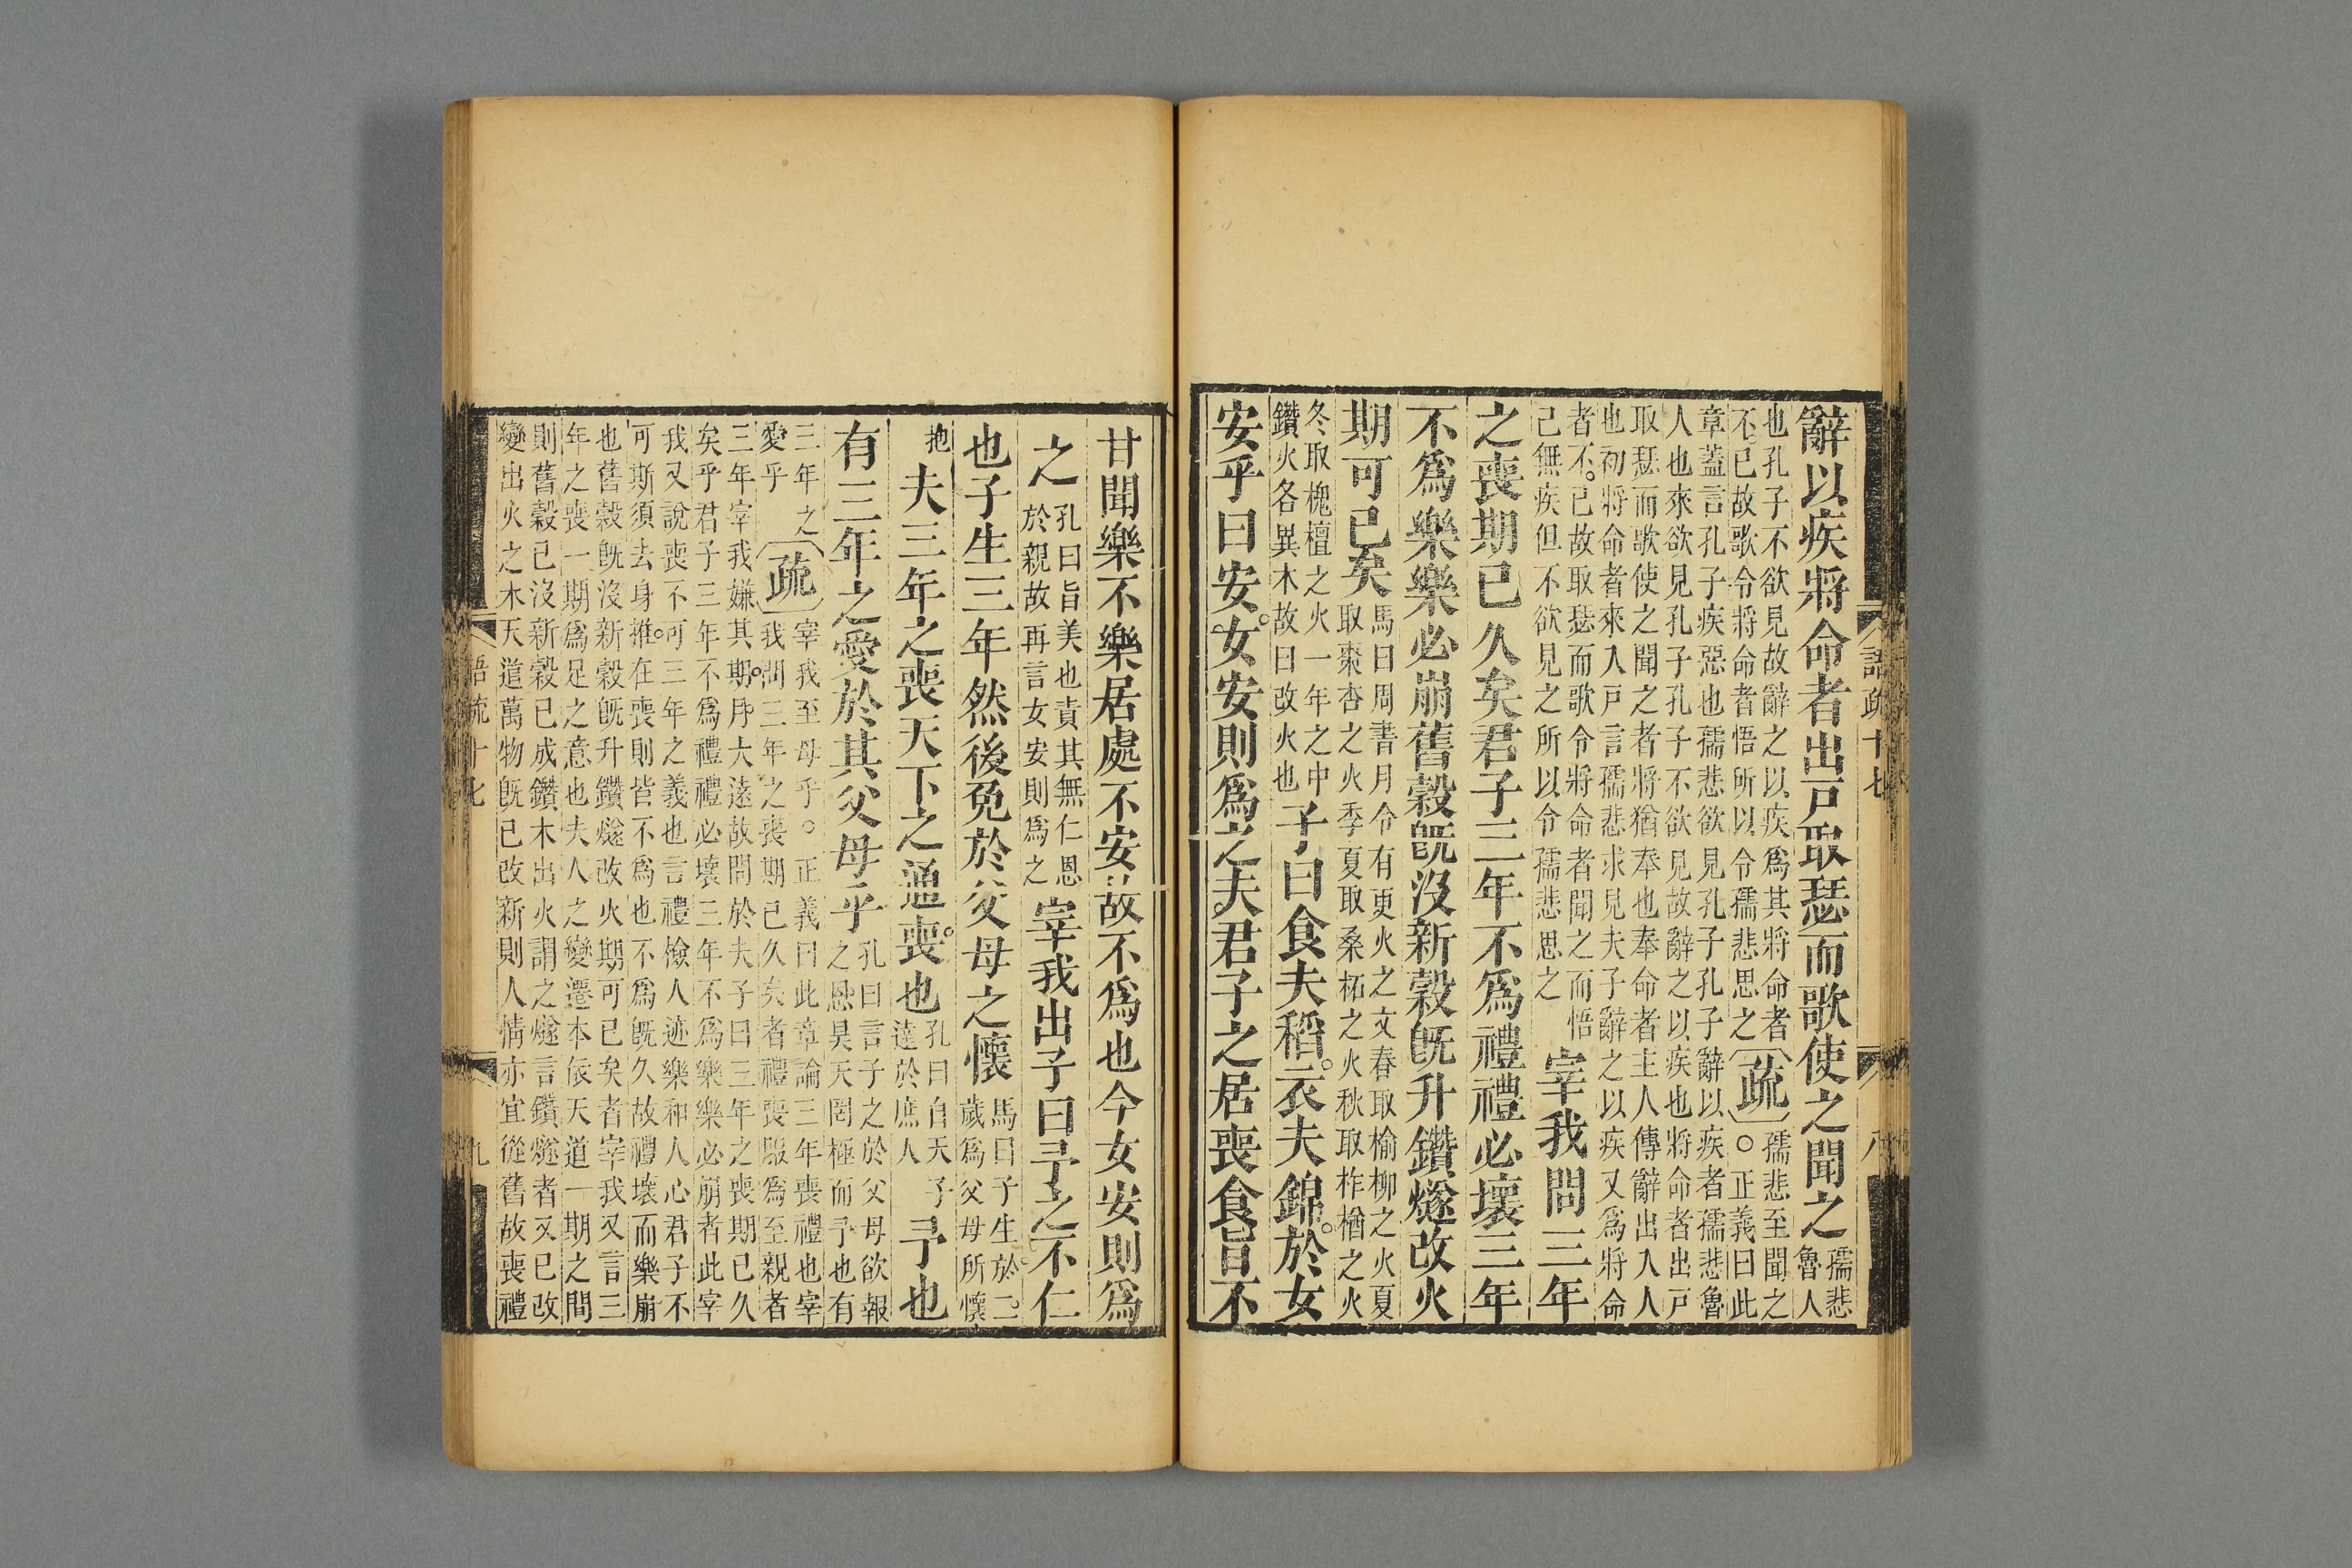 語疏十七
八
辭以疾將命者出戶取瑟而歌使之聞之
孺悲
魯人
也孔子不欲見故辭之以疾爲其將命者
不已故歌令將命者悟所以令孺悲思之
疏
孺悲至聞之
○正義曰此
章蓋言孔子疾惡也孺悲欲見孔子孔子辭以疾者孺悲魯
人也來欲見孔子孔子不欲見故辭之以疾也將命者出戶
取瑟而歌使之聞之者將猶奉也奉命者主人傳辭出入人
也初將命者來入戶言孺悲求見夫子辭之以疾又爲將命
者不已故取瑟而歌令將命者聞之而悟
己無疾但不欲見之所以令孺悲思之
宰我問三年
之喪期已久矣君子三年不爲禮禮必壞三年
不爲樂樂必崩舊穀旣没新穀旣升鑽燧改火
期可已矣
馬曰周書月令有更火之文春取榆柳之火夏
取棗杏之火季夏取桑柘之火秋取柞楢之火
冬取槐檀之火一年之中
鑽火各異木故曰改火也
子曰食夫稻。衣夫錦。於女
安乎曰安。女安則爲之夫君子之居喪食旨不
甘聞樂不樂居處不安故不爲也今女安則爲
之
孔曰旨美也責其無仁恩
於親故再言女安則爲之
宰我出子曰予之不仁
也子生三年然後免於父母之懷
馬曰子生於二。
歲爲父母所懷
抱
夫三年之喪天下之通喪。也
孔曰自天子
達於庶人
予也
有三年之愛於其父母乎
孔曰言子之於父母欲報
之恩昊天罔極而予也有
三年之
愛乎
疏
宰我至母乎○正義曰此章論三年喪禮也宰
我問三年之喪期已久矣者禮喪服爲至親者
三年宰我嫌其期。月大遠故問於夫子曰三年之喪期已久
矣乎君子三年不爲禮禮必壞三年不爲樂樂必崩者此宰
我又說喪不可三年之義也言禮檢人迹樂和人心君子不
可斯須去身。惟在喪則皆不爲也不爲旣久故禮壞而樂崩
也舊穀旣没新穀旣升鑽燧改火期可已矣者宰我又言三
年之喪一期爲足之意也夫人之變遷本依天道一期之間
則舊穀已没新穀已成鑽木出火謂之燧言鑽燧者又已改
變出火之木天道萬物旣已改新則人情亦宜從舊故喪禮
語疏十七
九